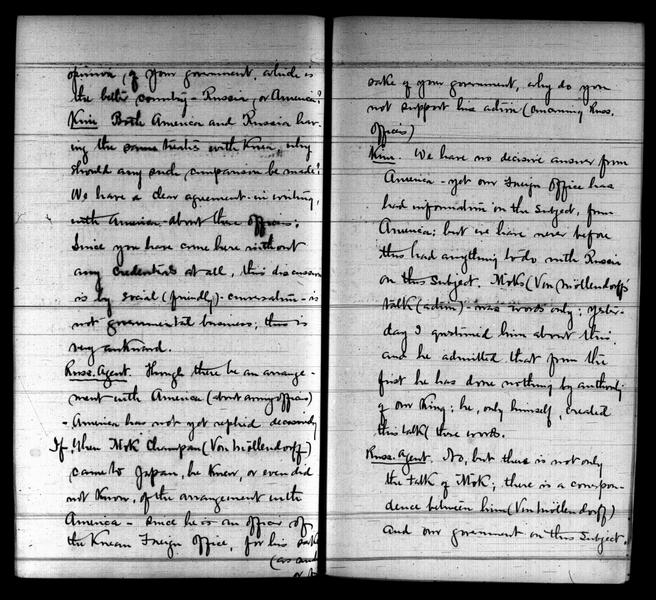 opinion, of your government, which is
the better country - Russia, or America?
Kim Both America and Russia hav-
ing the same treaties with Korea, why
should any such comparison be made?
We have a clear agreement in writing,
with America about these officers;
Since you have come here without
any credentials at all, this discussion
is by social (friendly) conversation - is
not governmental business; this is
very awkward.
Russ. Agent. Though there be an arrange-
ment with America (about army officers)
- America has not yet replied decisively
If, when Mok Champan (Von Möllendorff)
came to Japan, he knew, or even did
not know, of the arrangement with
America - since he is an officer of
the Korean Foreign Office, for his sake
(as and
sake of your government, why do you
not support his action (concerning Russ.
officers)
Kim. We have no decisive answer from
America - yet our Foreign Office has
had information on the subject, from
America; but we have never before
this had anything to do with Russia
on this subject. Mok's (Von Möllendorff's
talk (action) was words only; yester-
day I questioned him about this
and he admitted that from the
first he has done nothing by authority
of our King; he, only himself, created
this talk (these words.
Russ. Agent. No, but there is not only
the talk of Mok; there is a correspon-
dence between him (Von Möllendorff)
and our government on this subject.